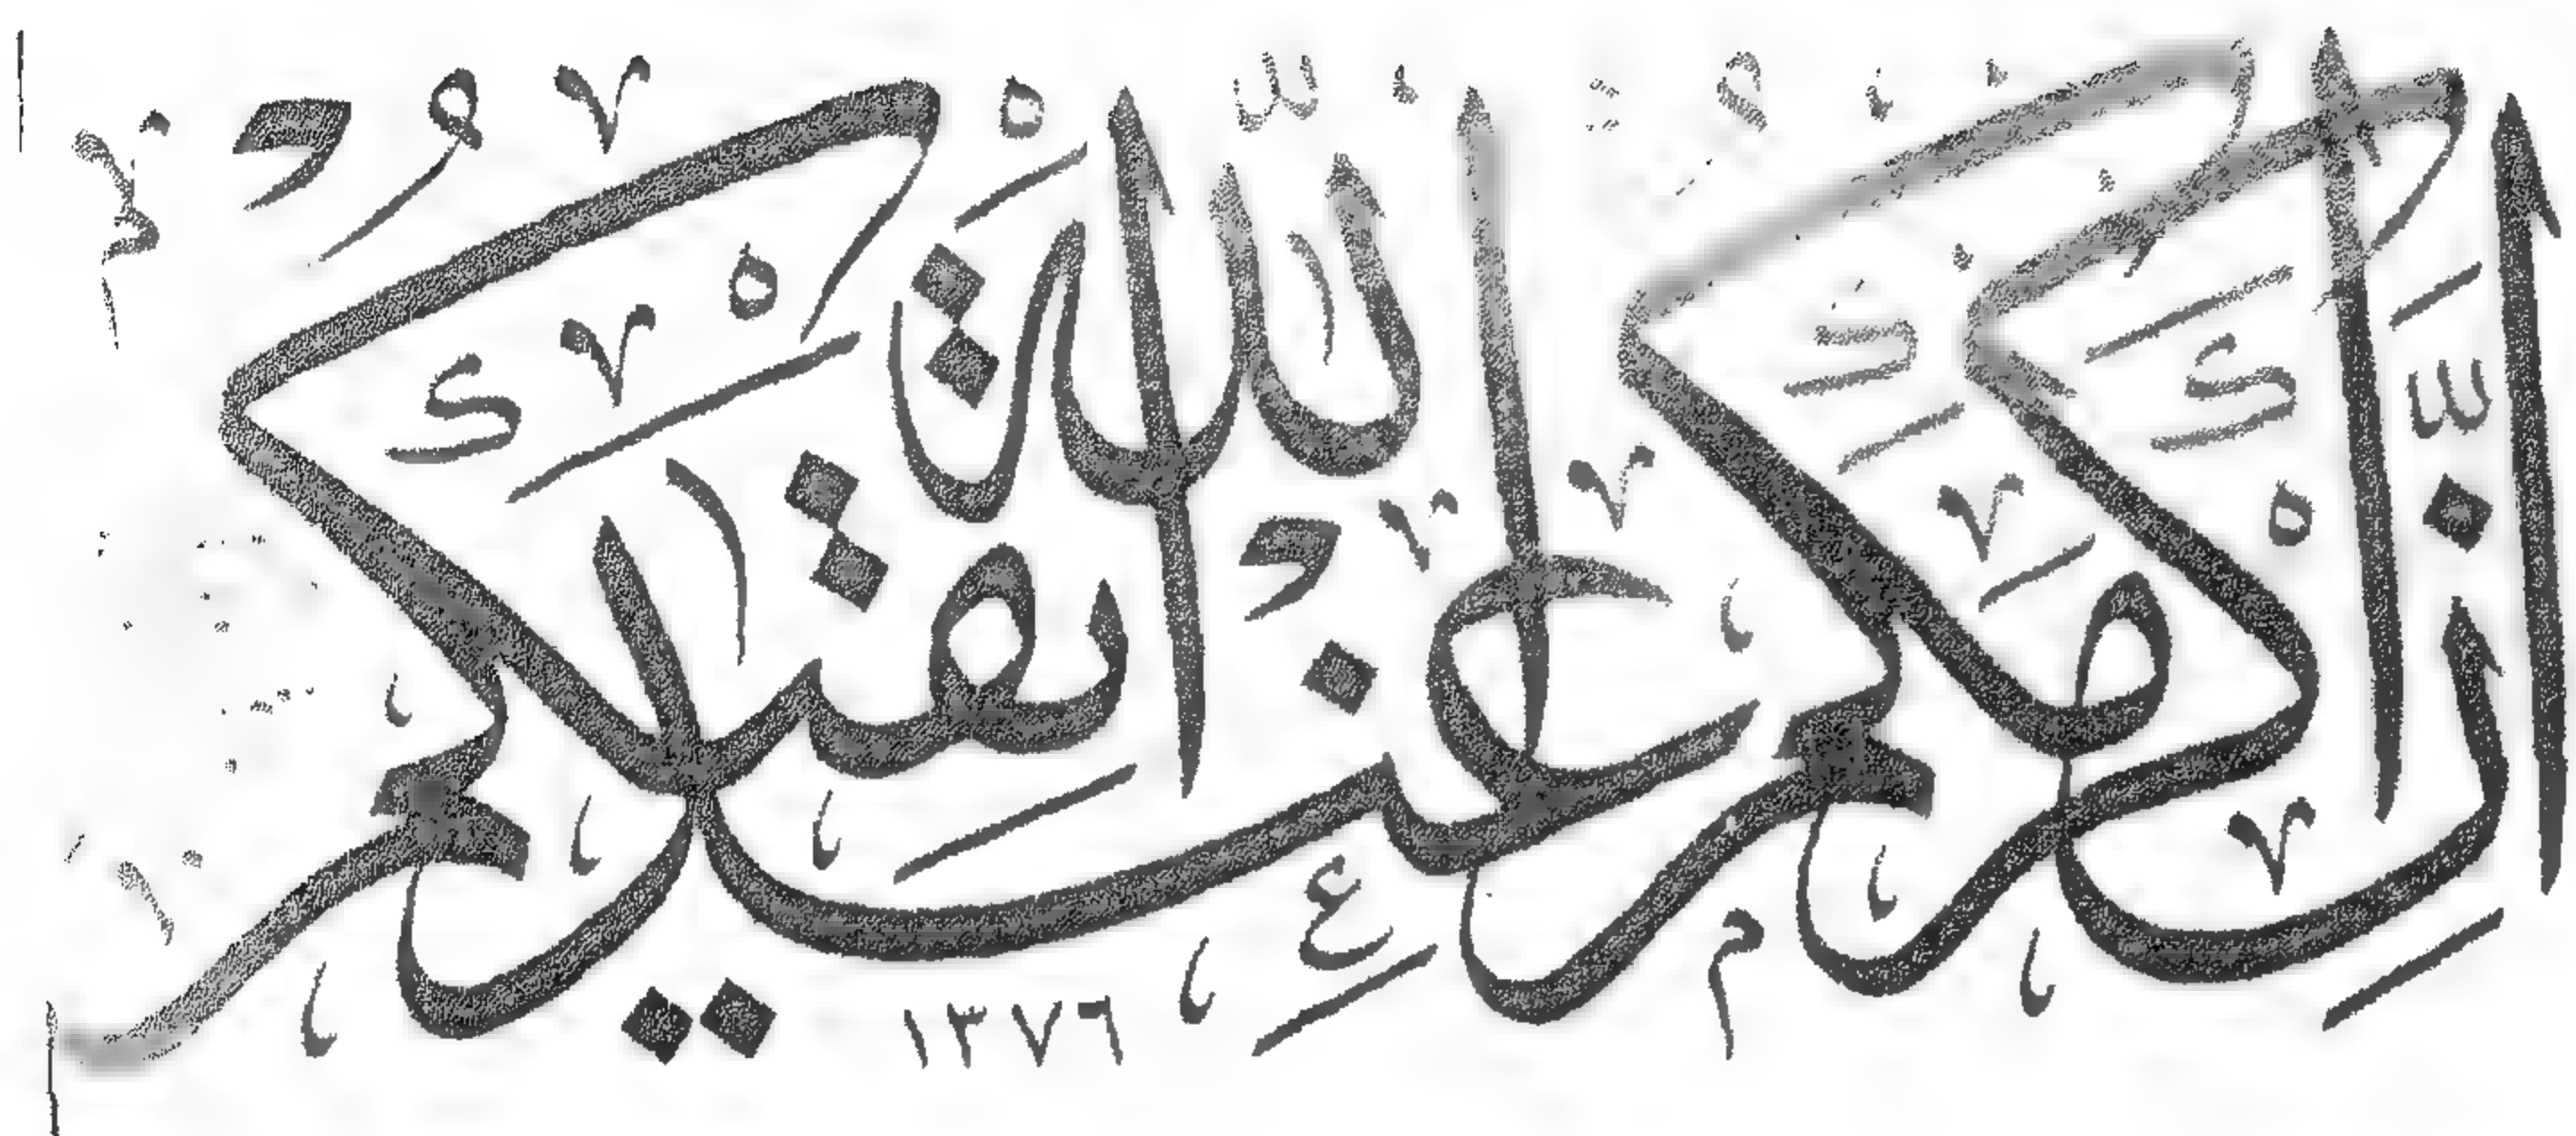 إن أكرمكم عند الله أتقاكم
١٣٧٦